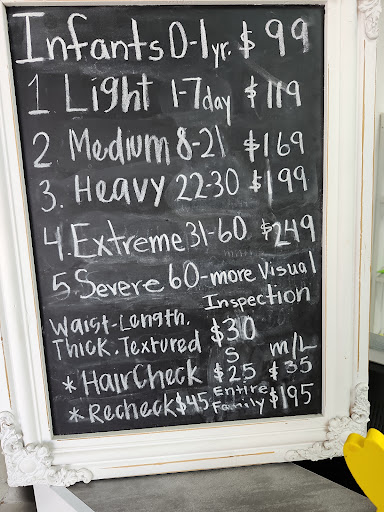 Infants 0-1yr. $99
1 Light 1-7day $119
2 Medium 8-21 $169
3. Heavy 22-30 $199
4. Extreme 31-60 $249
5. Severe 60-more Visual
Inspection
Waist-Length,
Thick.Textured $30
S m/L
* HairCheck $25 $35
* Recheck $45 Entire Family $195